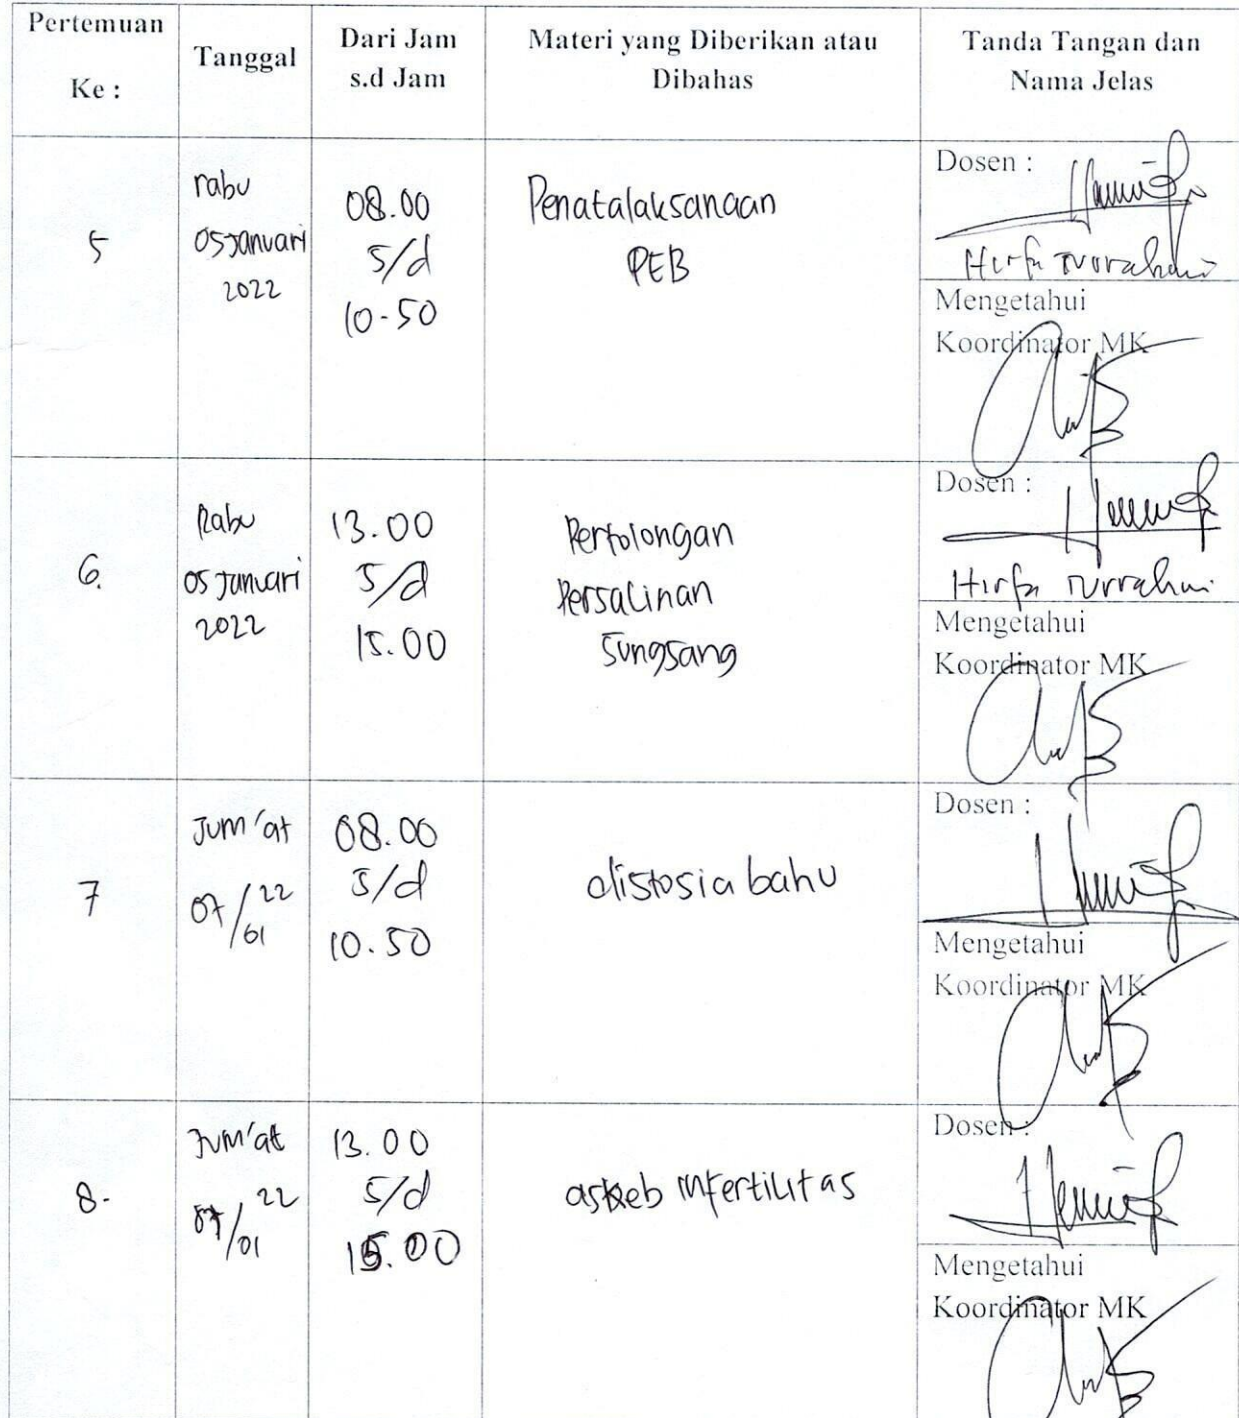 Pertemuan
Ke :
Tanggal
Dari Jam
s.d Jam
Materi yang Diberikan atau
Dibahas
Tanda Tangan dan
Nama Jelas
5
rabu
05 Januari
2022
08.00
s/d
10.50
Penatalaksanaan
PEB
Dosen :
Hirfa Nurrahmi
Mengetahui
Koordinator MK
6.
Rabu
05 Januari
2022
13.00
s/d
15.00
Pertolongan
Persalinan
Sungsang
Dosen :
Hirfa Nurrahmi
Mengetahui
Koordinator MK
7
Jum'at
07/22
/01
08.00
s/d
10.50
distosia bahu
Dosen :
Mengetahui
Koordinator MK
8.
Jum'at
07/22
/01
13.00
s/d
15.00
askeb infertilitas
Dosen :
Mengetahui
Koordinator MK